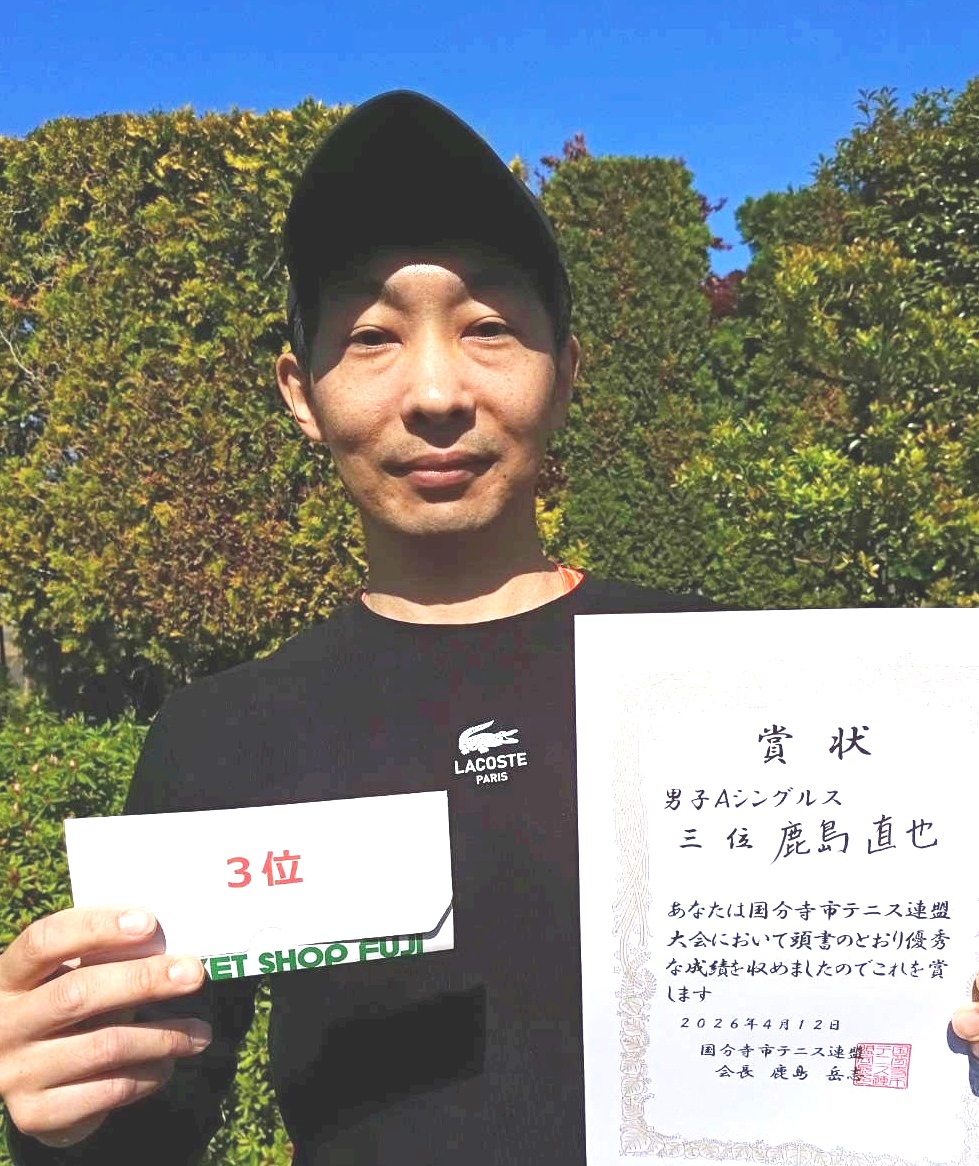 LACOSTE
PARIS
3位
KET SHOP FUJI
賞状
男子Aシングルス
三位 鹿島直也
あなたは国分寺市テニス連盟
大会において頭書のとおり優秀
な成績を収めましたのでこれを賞
します
2026年4月12日
国分寺市テニス連盟
会長 鹿島 岳志